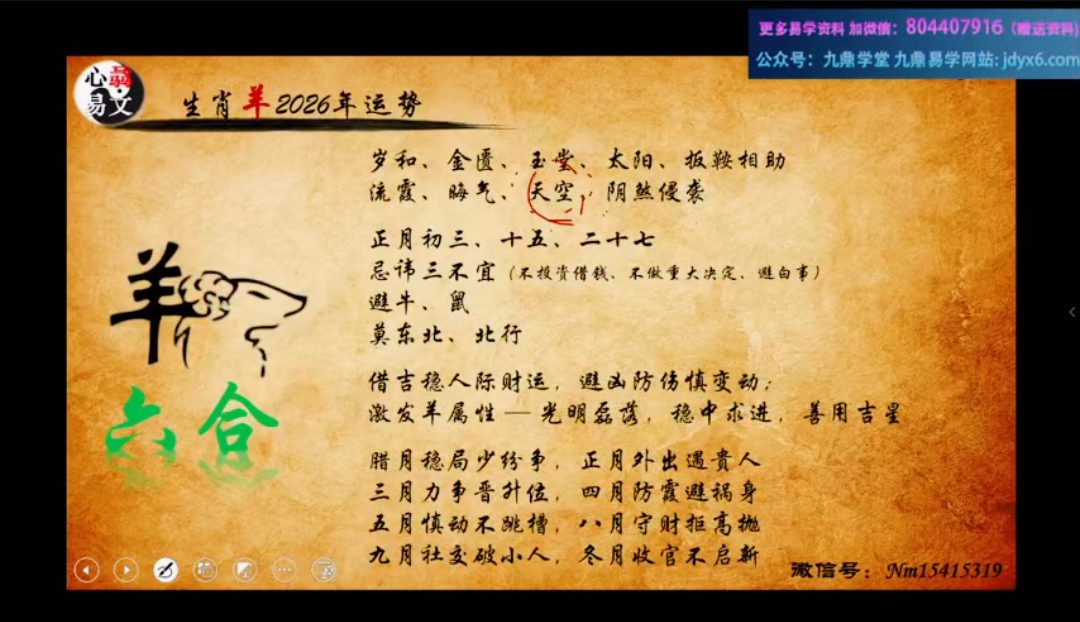 更多易学资料 加微信：804407916（赠送资料）
公众号：九鼎学堂 九鼎易学网站: jdyx6.com
心
易文
生肖羊2026年运势
岁和、金匮、玉堂、太阳、扳鞍相助
流霞、晦气、天空、阴煞侵袭
正月初三、十五、二十七
忌讳三不宜（不投资借钱、不做重大决定、避白事）
避牛、鼠
莫东北、北行
羊
六合
借吉稳人际财运，避凶防伤慎变动；
激发羊属性—光明磊落，稳中求进，善用吉星
腊月稳局少纷争，正月外出遇贵人
三月力争晋升位，四月防霞避祸身
五月慎动不跳槽，八月守财拒高抛
九月社交破小人，冬月收官不启新
微信号：Nm15415319